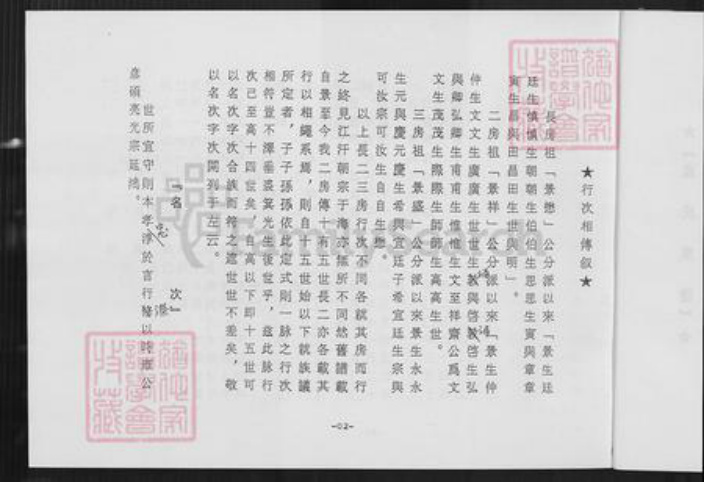 ★行次相傳叙★
長房祖「景懋」公分派以來「景生廷
廷生慎慎生朝朝生伯伯生思思生寅與章章
寅生昌與田昌田生世與明」。
二房祖「景祥」公分派以來「景生仲
仲生文文生廣廣生世世生敦與啓敦啓生弘
與卿弘卿生甫甫生惟惟生文至祥齋公爲文
文生茂茂生際際生師師生高高生世。
三房祖「景盛」公分派以來景生永永
生元與慶元慶生希與宜廷子希宜廷生宗與
可汝宗可汝生自自生懋。
以上長二三房行次不同各就其房而行
之終見江汗朝宗于海亦無所不同然舊譜載
自景至今我二房傳十有五世長二亦各載其
行以相繩系焉，則自十五世始以下就族議
所定者，子子孫孫依此定式則一脉之行次
相符豈不澤垂裘箕光生後世乎，茲此脉行
次已至高十四世矣，自高以下即十五世可
以名次字次合族而符之遮世世不差矣，敬
以名次字次開列于左云。
『名次』
世所宜守則本孝淳於言行隆以時雍公
彦碩亮光宗延鴻。
忠
-02-